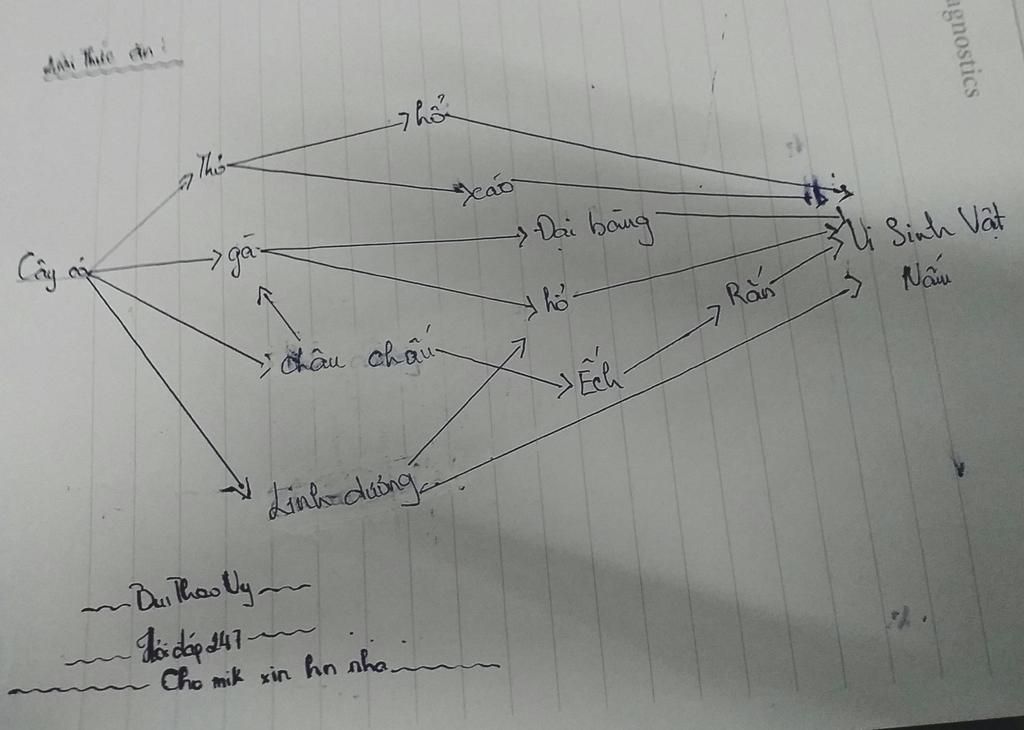 thức ăn:
agnostics
hổ
Thỏ
cáo
Đại bàng
Vi Sinh Vật
gà
Cây cỏ
Nấm
hổ
Rắn
châu chấu
Ếch
Linh dương
Bui Thao Vy
Hỏi đáp 247
Cho mik xin hn nha